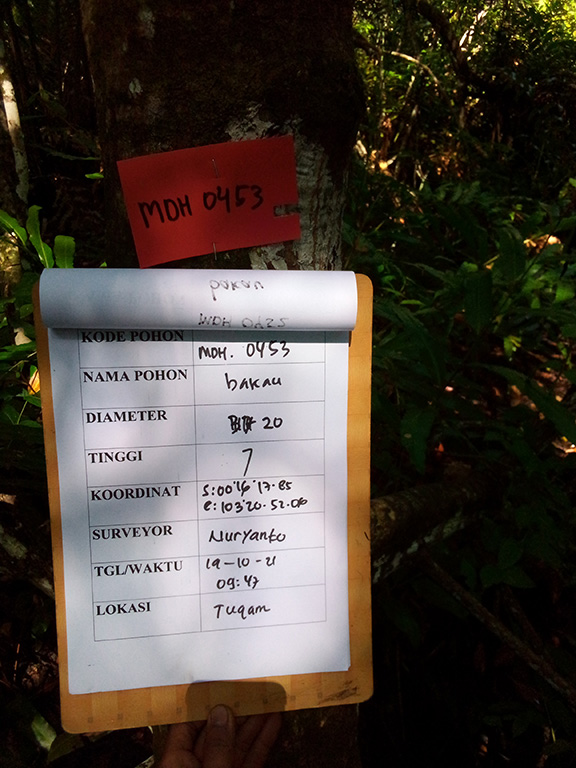 MDH 0453
pokon
MDH 0425
KODE POHON MDH. 0453
NAMA POHON bakau
DIAMETER 20
TINGGI 7
KOORDINAT S:00'16'17.85
e:103'20.52.06
SURVEYOR Nuryanto
TGL/WAKTU 19-10-21
09:47
LOKASI Tuqam